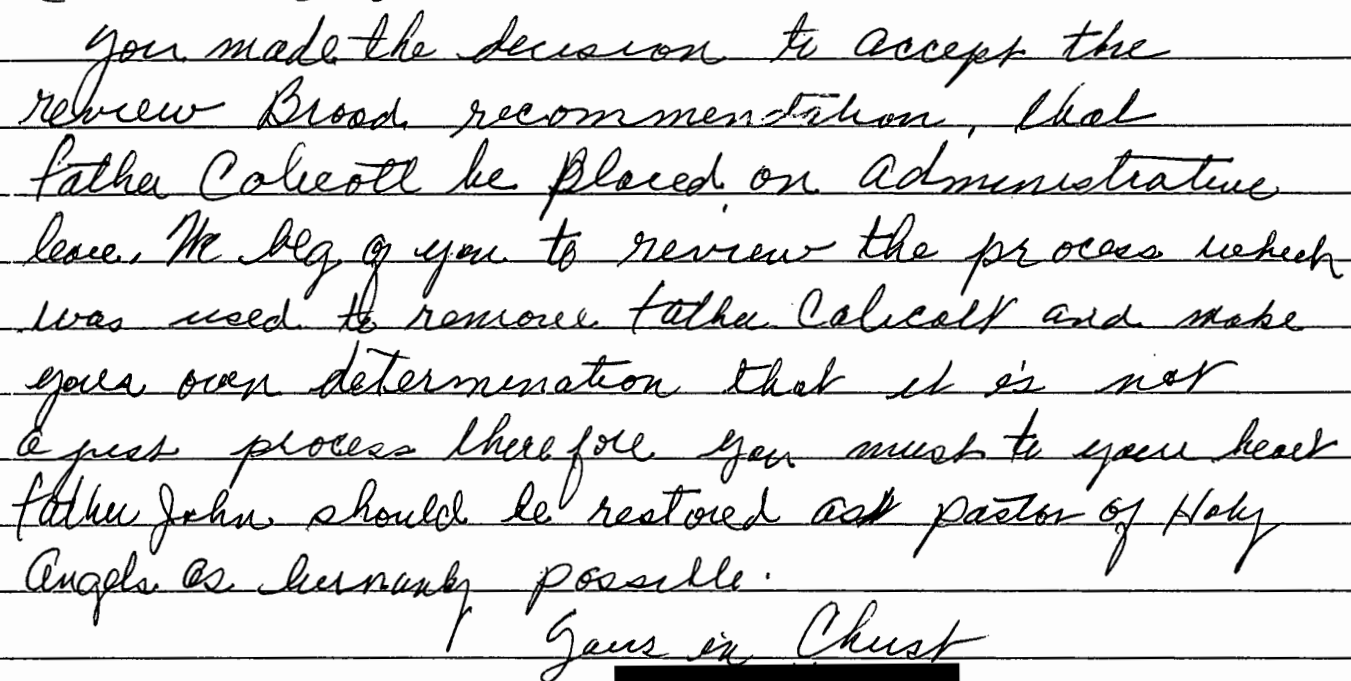 you made the decision to accept the
review Broad recommendation, that
father Calicott be placed on administrative
leave. We beg of you to review the process which
was used to remove father Calicott and make
your own determination that it is not
a just process therefore you must to your heart
father John should be restored as pastor of Holy
Angels as humanly possible.
Yours in Christ